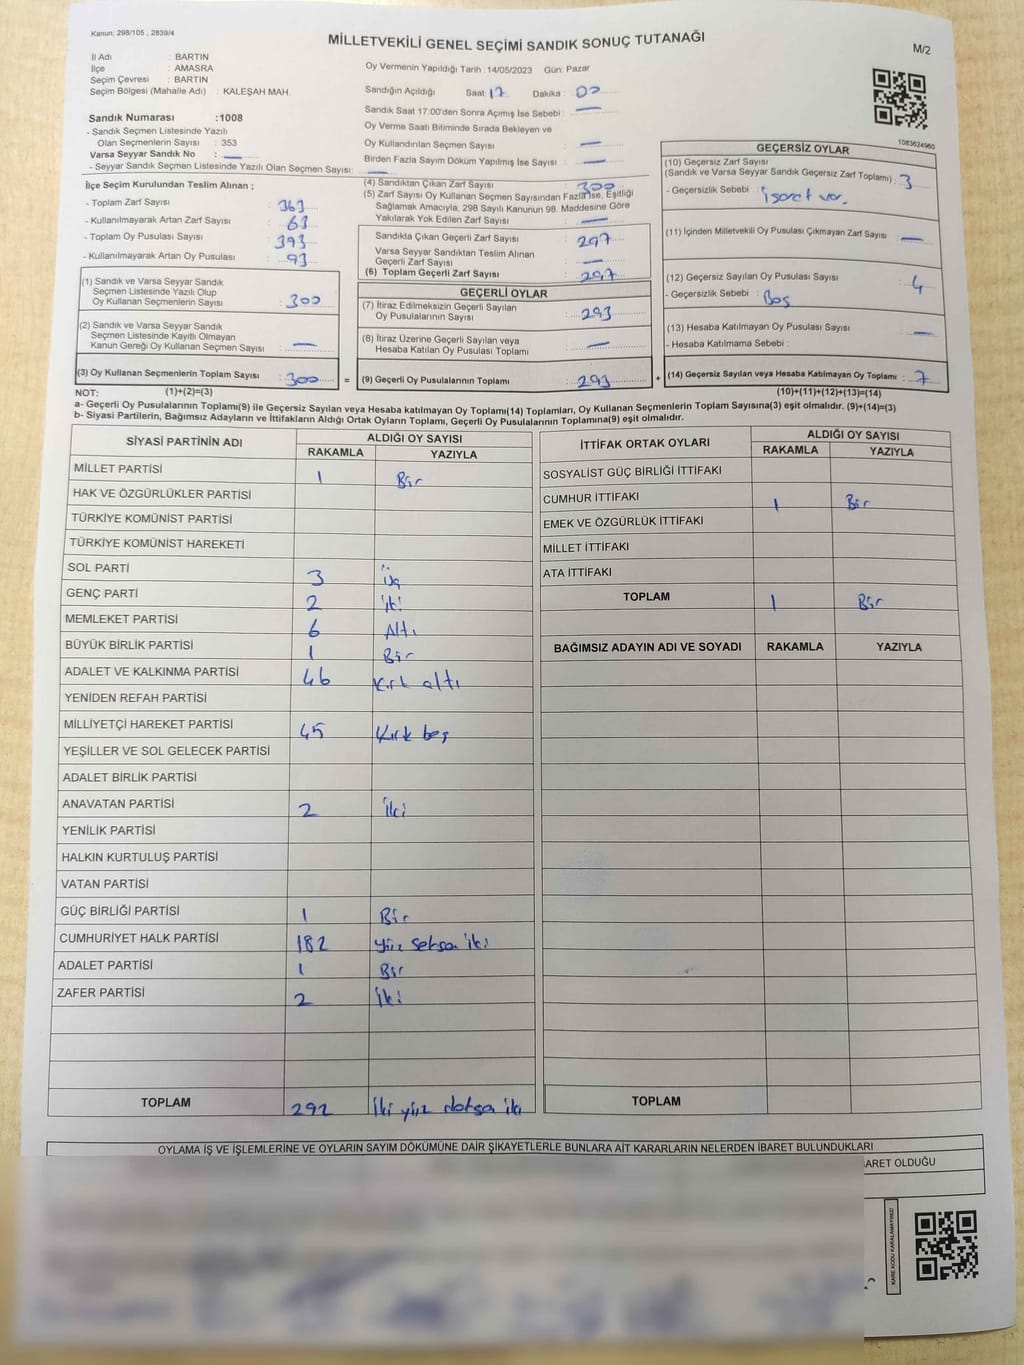 Kanun; 298/105 , 2839/4
MİLLETVEKİLİ GENEL SEÇİMİ SANDIK SONUÇ TUTANAĞI
M/2
İl Adı : BARTIN
İlçe : AMASRA
Seçim Çevresi : BARTIN
Seçim Bölgesi (Mahalle Adı) : KALEŞAH MAH.
Oy Vermenin Yapıldığı Tarih : 14/05/2023 Gün: Pazar
Sandığın Açıldığı Saat : 17 Dakika : 00
Sandık Saat 17:00'den Sonra Açmış İse Sebebi : —
Oy Verme Saati Bitiminde Sırada Bekleyen ve
Oy Kullandırılan Seçmen Sayısı : —
Birden Fazla Sayım Döküm Yapılmış İse Sayısı : —
Sandık Numarası :1008
- Sandık Seçmen Listesinde Yazılı
Olan Seçmenlerin Sayısı : 353
Varsa Seyyar Sandık No : —
- Seyyar Sandık Seçmen Listesinde Yazılı Olan Seçmen Sayısı: —
İlçe Seçim Kurulundan Teslim Alınan ;
- Toplam Zarf Sayısı : 363
- Kullanılmayarak Artan Zarf Sayısı : 63
- Toplam Oy Pusulası Sayısı : 393
- Kullanılmayarak Artan Oy Pusulası : 93
(1) Sandık ve Varsa Seyyar Sandık
Seçmen Listesinde Yazılı Olup
Oy Kullanan Seçmenlerin Sayısı : 300
(2) Sandık ve Varsa Seyyar Sandık
Seçmen Listesinde Kayıtlı Olmayan
Kanun Gereği Oy Kullanan Seçmen Sayısı : —
(3) Oy Kullanan Seçmenlerin Toplam Sayısı : 300 =
(1)+(2)=(3)
(4) Sandıktan Çıkan Zarf Sayısı : 300
(5) Zarf Sayısı Oy Kullanan Seçmen Sayısından Fazla İse, Eşitliği
Sağlamak Amacıyla; 298 Sayılı Kanunun 98. Maddesine Göre
Yakılarak Yok Edilen Zarf Sayısı : —
Sandıkta Çıkan Geçerli Zarf Sayısı : 297
Varsa Seyyar Sandıktan Teslim Alınan
Geçerli Zarf Sayısı : —
(6) Toplam Geçerli Zarf Sayısı : 297
GEÇERLİ OYLAR
(7) İtiraz Edilmeksizin Geçerli Sayılan
Oy Pusulalarının Sayısı : 293
(8) İtiraz Üzerine Geçerli Sayılan veya
Hesaba Katılan Oy Pusulası Toplamı : —
(9) Geçerli Oy Pusulalarının Toplamı : 293 +
1083624960
GEÇERSİZ OYLAR
(10) Geçersiz Zarf Sayısı
(Sandık ve Varsa Seyyar Sandık Geçersiz Zarf Toplamı) : 3
- Geçersizlik Sebebi : işaret var.
(11) İçinden Milletvekili Oy Pusulası Çıkmayan Zarf Sayısı : —
(12) Geçersiz Sayılan Oy Pusulası Sayısı : 4
- Geçersizlik Sebebi : Boş
(13) Hesaba Katılmayan Oy Pusulası Sayısı : —
- Hesaba Katılmama Sebebi :
(14) Geçersiz Sayılan veya Hesaba Katılmayan Oy Toplamı : 7
(10)+(11)+(12)+(13)=(14)
NOT:
a- Geçerli Oy Pusulalarının Toplamı(9) ile Geçersiz Sayılan veya Hesaba katılmayan Oy Toplamı(14) Toplamları, Oy Kullanan Seçmenlerin Toplam Sayısına(3) eşit olmalıdır. (9)+(14)=(3)
b- Siyasi Partilerin, Bağımsız Adayların ve İttifakların Aldığı Ortak Oyların Toplamı, Geçerli Oy Pusulalarının Toplamına(9) eşit olmalıdır.
SİYASİ PARTİNİN ADI ALDIĞI OY SAYISI
RAKAMLA YAZIYLA
MİLLET PARTİSİ 1 Bir
HAK VE ÖZGÜRLÜKLER PARTİSİ
TÜRKİYE KOMÜNİST PARTİSİ
TÜRKİYE KOMÜNİST HAREKETİ
SOL PARTİ 3 Üç
GENÇ PARTİ 2 iki
MEMLEKET PARTİSİ 6 Altı
BÜYÜK BİRLİK PARTİSİ 1 Bir
ADALET VE KALKINMA PARTİSİ 46 Kırk altı
YENİDEN REFAH PARTİSİ
MİLLİYETÇİ HAREKET PARTİSİ 45 Kırk beş
YEŞİLLER VE SOL GELECEK PARTİSİ
ADALET BİRLİK PARTİSİ
ANAVATAN PARTİSİ 2 İki
YENİLİK PARTİSİ
HALKIN KURTULUŞ PARTİSİ
VATAN PARTİSİ
GÜÇ BİRLİĞİ PARTİSİ 1 Bir
CUMHURİYET HALK PARTİSİ 182 Yüz seksen iki
ADALET PARTİSİ 1 Bir
ZAFER PARTİSİ 2 İki
TOPLAM 292 İki yüz doksan iki
İTTİFAK ORTAK OYLARI ALDIĞI OY SAYISI
RAKAMLA YAZIYLA
SOSYALİST GÜÇ BİRLİĞİ İTTİFAKI
CUMHUR İTTİFAKI 1 Bir
EMEK VE ÖZGÜRLÜK İTTİFAKI
MİLLET İTTİFAKI
ATA İTTİFAKI
TOPLAM 1 Bir
BAĞIMSIZ ADAYIN ADI VE SOYADI RAKAMLA YAZIYLA
TOPLAM
OYLAMA İŞ VE İŞLEMLERİNE VE OYLARIN SAYIM DÖKÜMÜNE DAİR ŞİKAYETLERLE BUNLARA AİT KARARLARIN NELERDEN İBARET BULUNDUKLARI
BARET OLDUĞU
KARE KODU KARALAMAYINIZ!